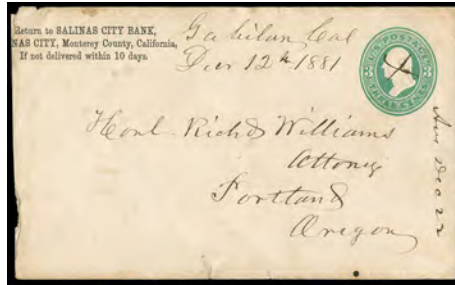 Return to SALINAS CITY BANK,
NAS CITY, Monterey County, California,
If not delivered within 10 days.
Gabilan Cal
Dec 12th 1881
U.S. POSTAGE
THREE CENTS
Honl. Richd Williams
Attorney
Portland
Oregon
Ans Dec 22